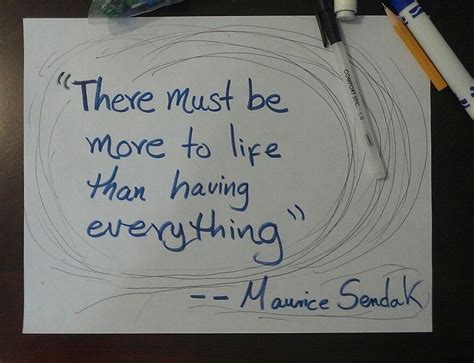 "There must be
more to life
than having
everything"
-- Maurice Sendak
COMFORT STIC